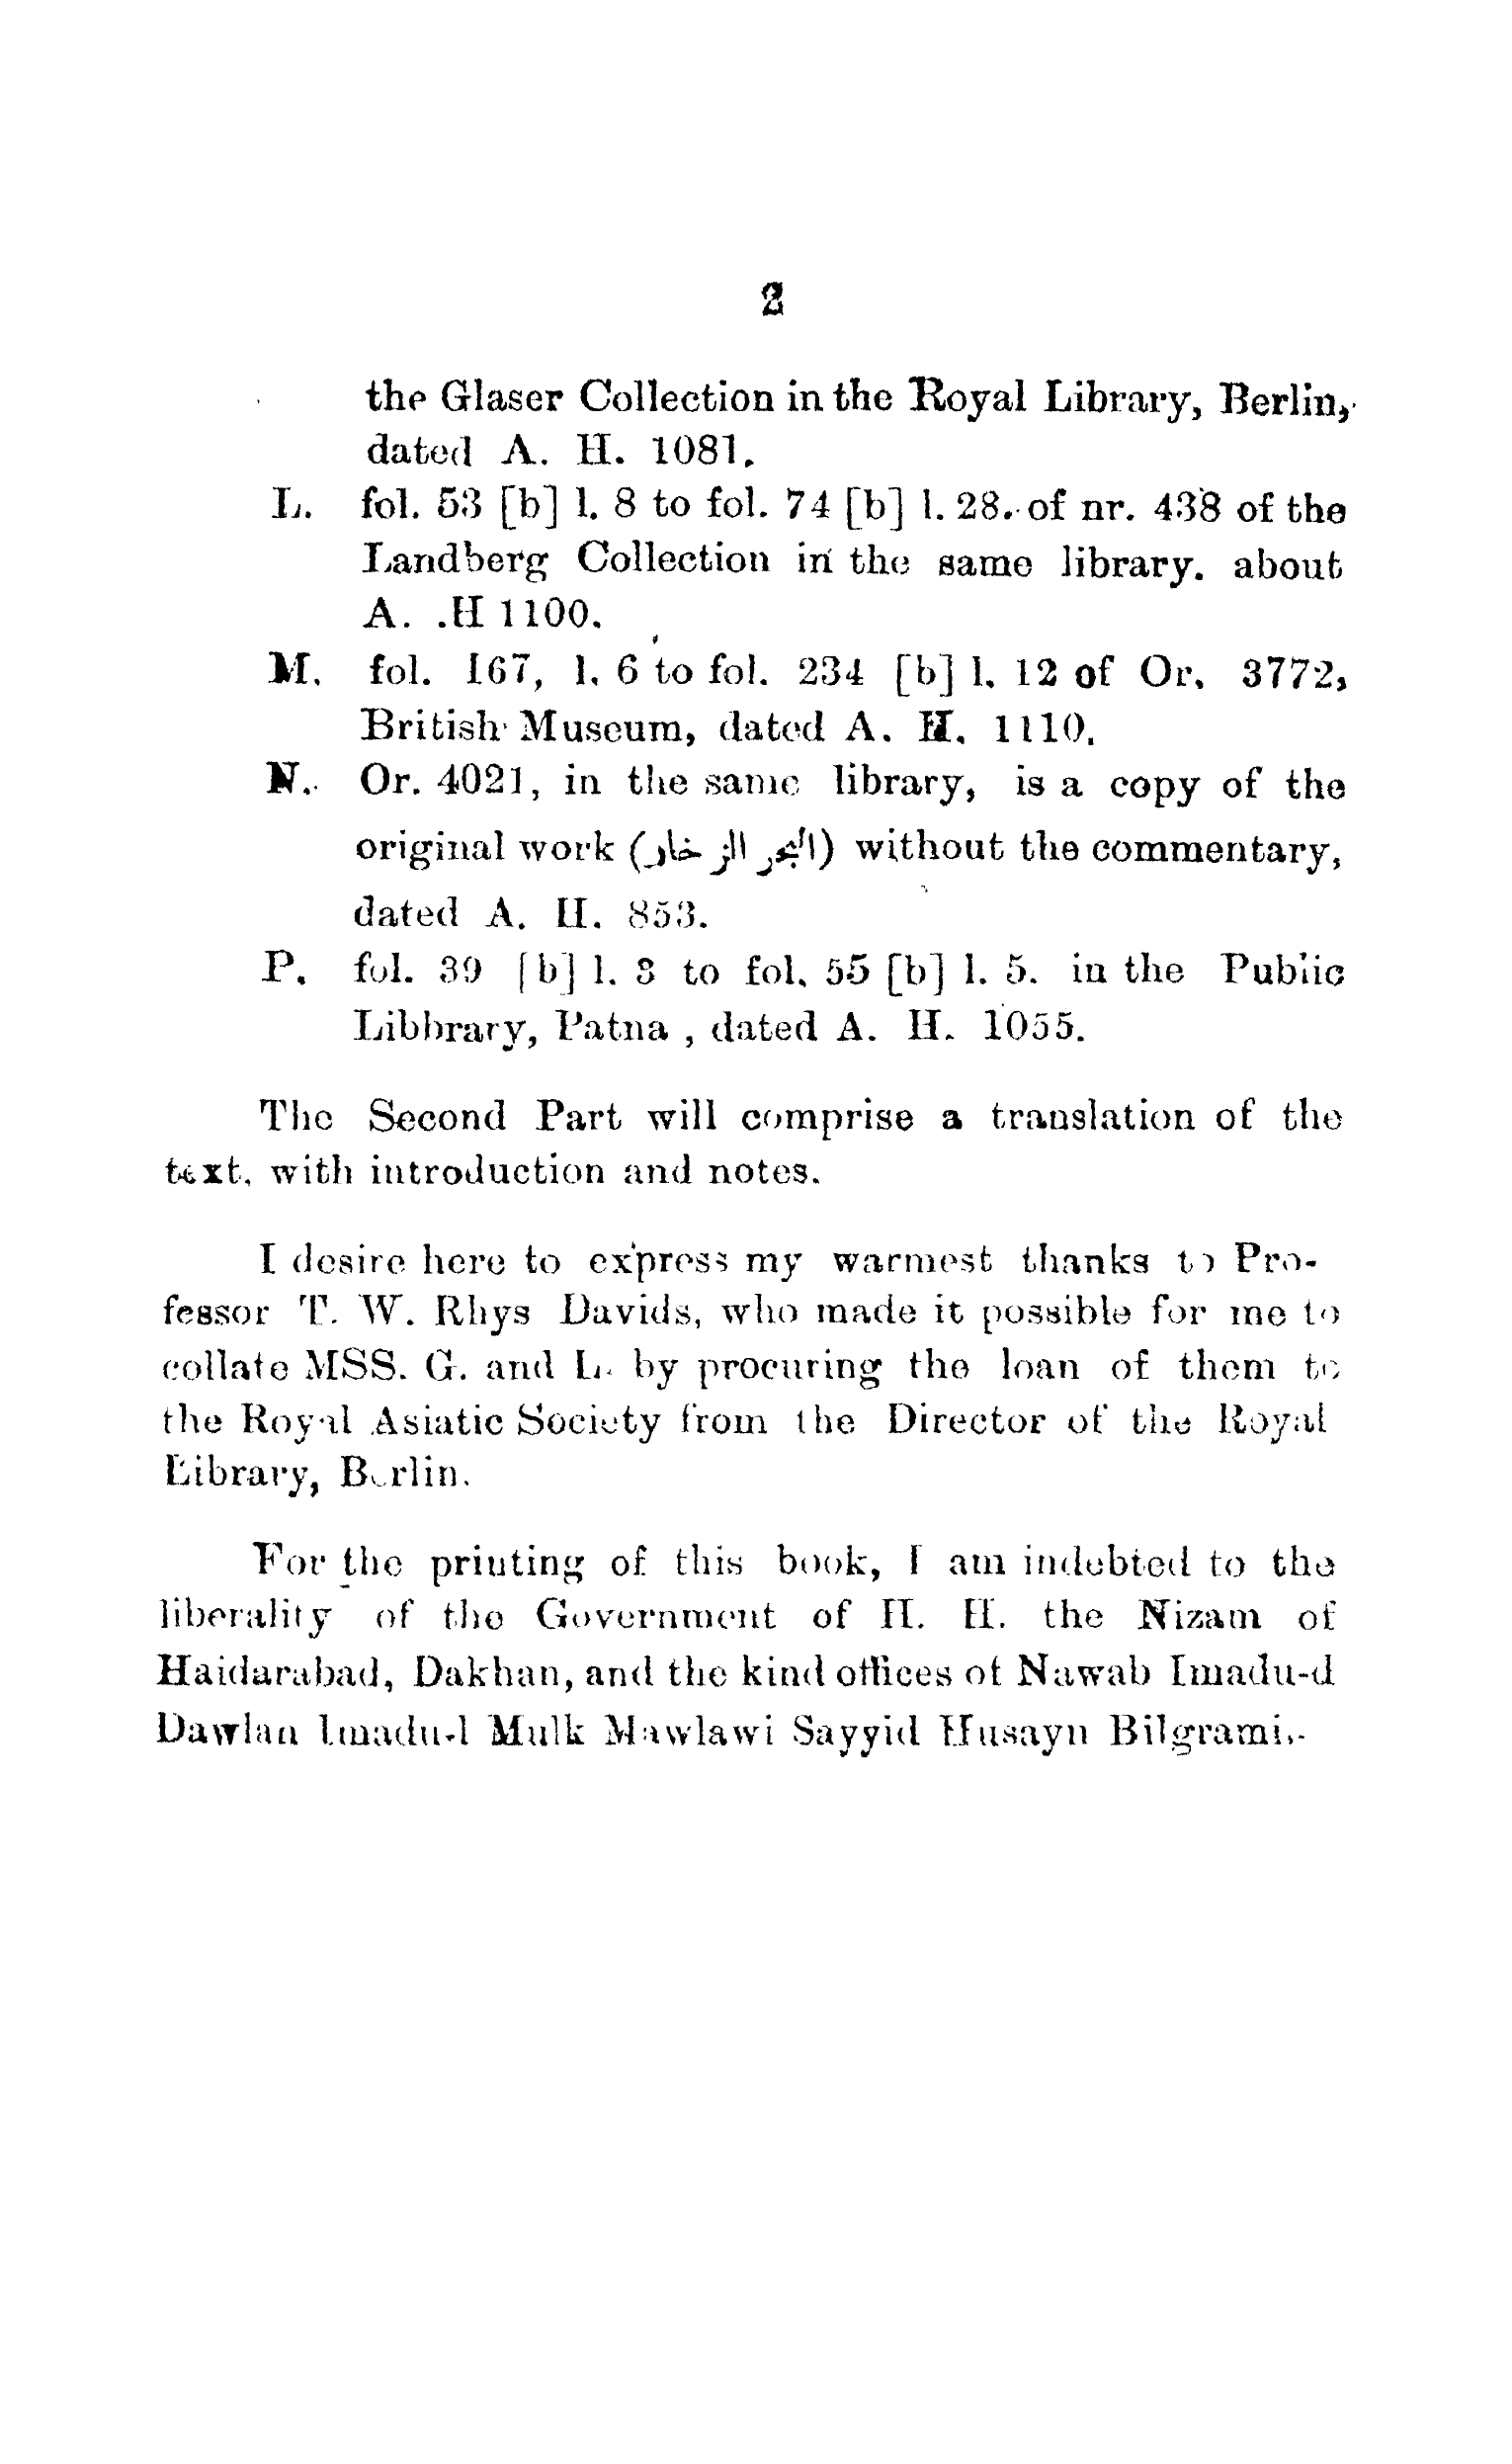 2
the Glaser Collection in the Royal Library, Berlin,
dated A. H. 1081.
L. fol. 53 [b] l. 8 to fol. 74 [b] l. 28. of nr. 438 of the
Landberg Collection in the same library. about
A. .H 1100.
M. fol. 167, l. 6 to fol. 234 [b] l. 12 of Or. 3772,
British Museum, dated A. H. 1110.
N. Or. 4021, in the same library, is a copy of the
original work (البحر الزخار) without the commentary,
dated A. H. 853.
P. fol. 39 [b] l. 3 to fol. 55 [b] l. 5. in the Public
Libbrary, Patna , dated A. H. 1055.
The Second Part will comprise a translation of the
text, with introduction and notes.
I desire here to express my warmest thanks to Pro-
fessor T. W. Rhys Davids, who made it possible for me to
collate MSS. G. and L. by procuring the loan of them to
the Royal Asiatic Society from the Director of the Royal
Library, Berlin.
For the printing of this book, I am indebted to the
liberality of the Government of H. H. the Nizam of
Haidarabad, Dakhan, and the kind offices of Nawab Imadu-d
Dawlan Imadu-l Mulk Mawlawi Sayyid Husayn Bilgrami.